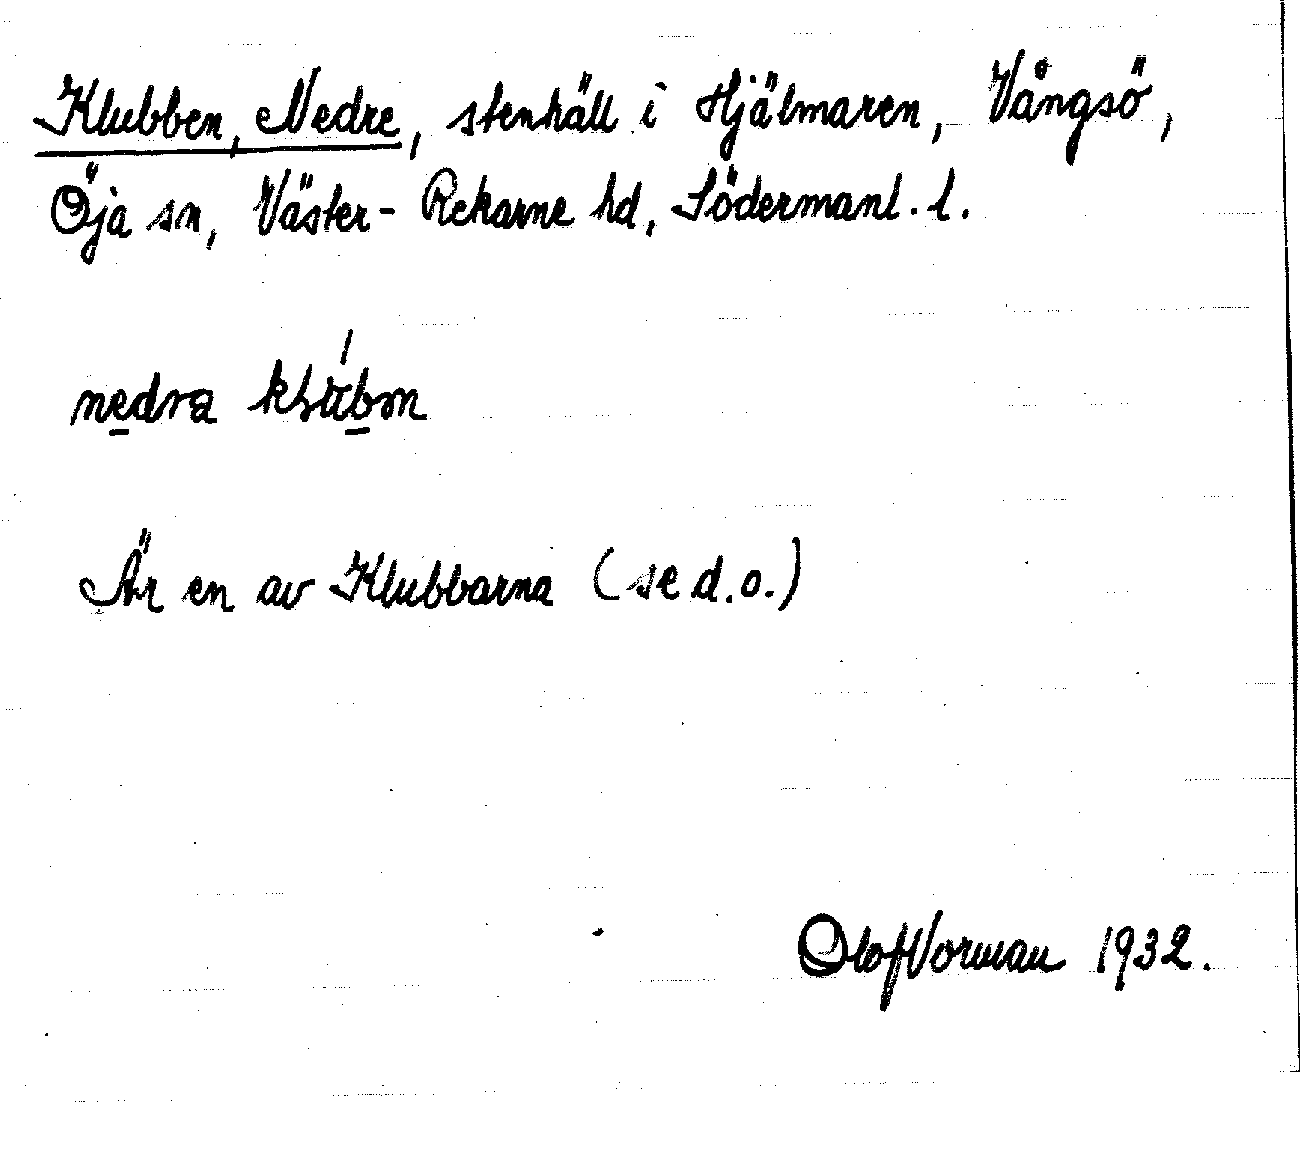 Klubben, Nedre, stenhäll i Hjälmaren, Vångsö,
Öja sn, Väster-Rekarne hd, Södermanl. l.
nedra
Är en av Klubbarna (se d.o.)
Olof Vorman 1932.